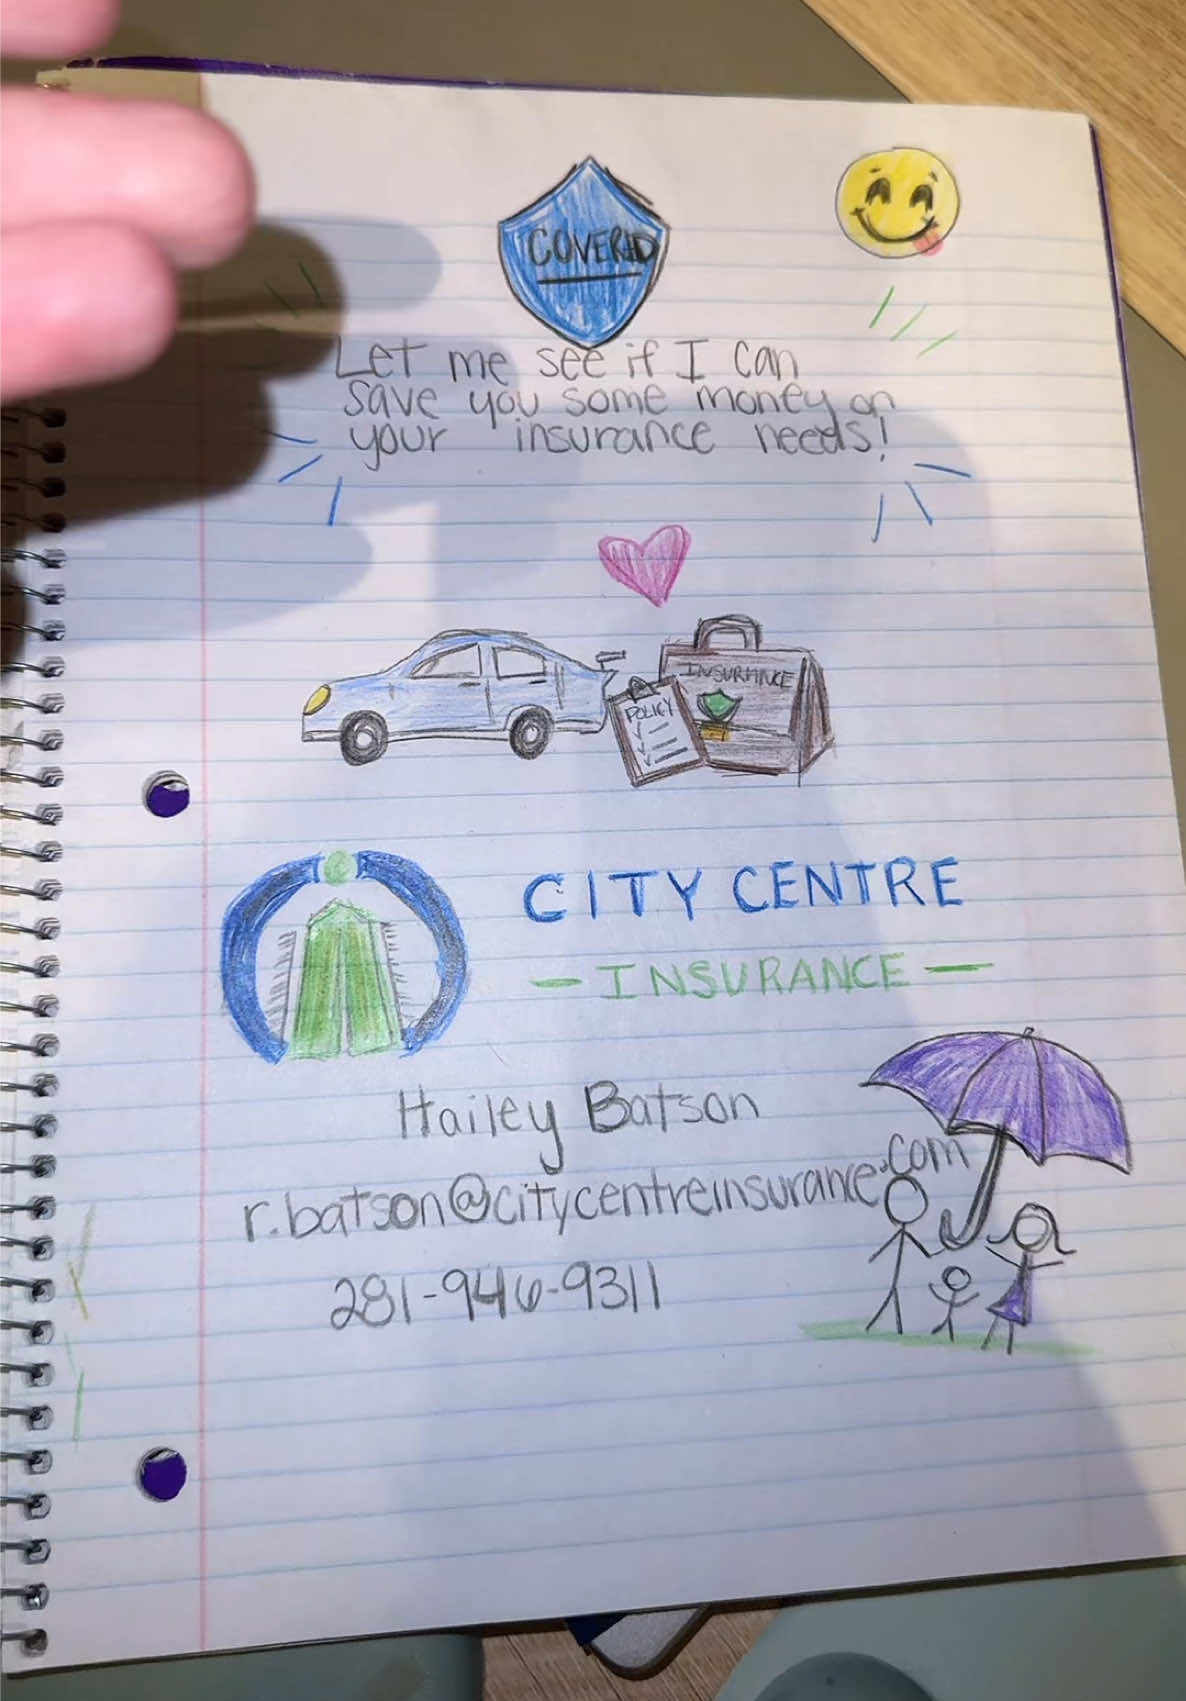 COVERED
Let me see if I can
save you some money on
your insurance needs!
INSURANCE
POLICY
CITY CENTRE
- INSURANCE -
Hailey Batson
r.batson@citycentreinsurance.com
281-946-9311